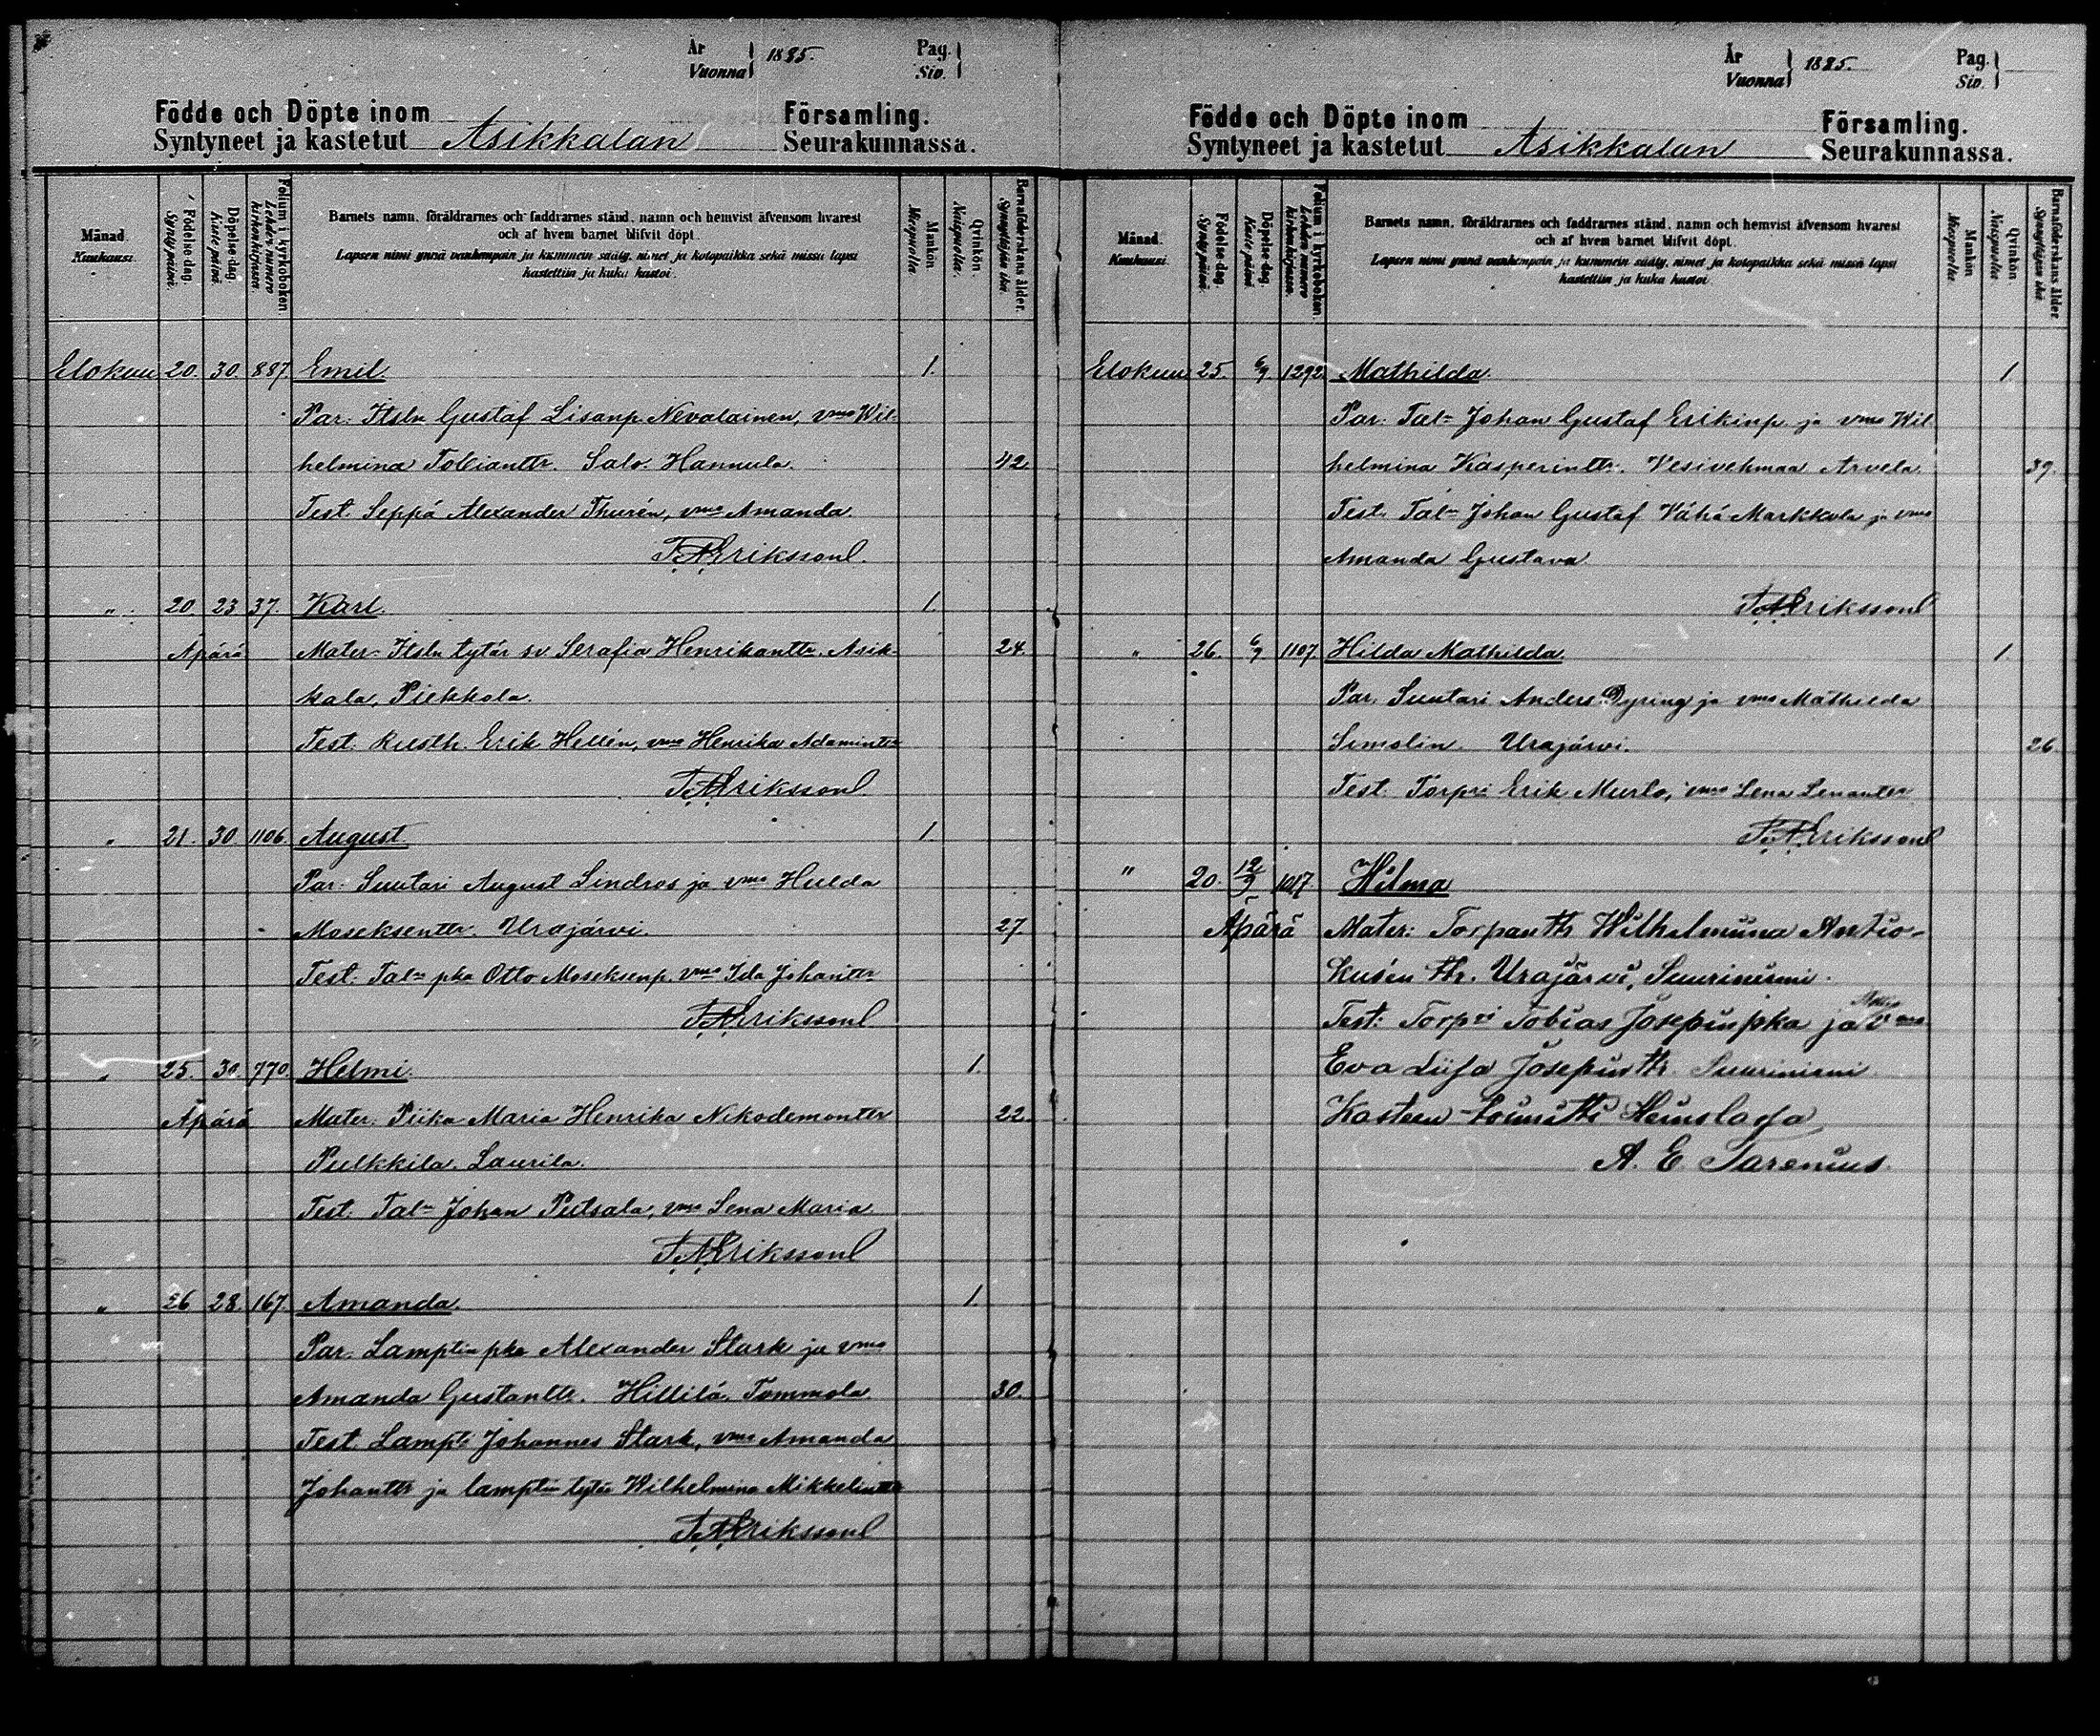 År
Vuonna 1885.
Pag.
Siv.
Födde och Döpte inom
Syntyneet ja kastetut Asikkalan
Församling.
Seurakunnassa.
Månad.
Kuukausi.
Födelse dag.
Syntypäivä.
Döpelse dag.
Kastepäivä
Folium i kyrkoboken
Lehden numero kirkonkirjassa.
Barnets namn, föräldrarnes och faddrarnes stånd, namn och hemvist äfvensom hvarest
och af hvem barnet blifvit döpt.
Lapsen nimi ynnä vanhempain ja kummein sääty, nimet ja kotopaikka sekä missä lapsi
kastettiin ja kuka kastoi.
Mankön
Miespuolia
Qvinkön
Naispuolia.
Barnaföderskans ålder.
Synnyttäjän ikä.
Elokuu 20. 30. 887 Emil 1.
Par. Itsln Gustaf Lisanp. Nevalainen, vmo Wil-
helmina Tobiantr. Salo. Hannula. 42.
Test. Seppä Alexander Thurén, vmo Amanda.
T. A. Eriksson
" 20. 23 37. Karl. 1.
Äpärä Mater- Itsln tytär sv Serafia Henrikantr. Asik-
24.
kala, Piekkola.
Test. Rusth. Erik Hellén, vmo Henrika Adamintr
T. A. Eriksson
" 21. 30 1106. August 1.
Par: Suutari August Lindros ja vmo Hulda
Moseksentr. Urajärvi. 27
Test: Taln pka Otto Moseksenp. vmo Ida Johantr
T. A. Eriksson
" 25. 30. 770. Helmi. 1.
Äpärä Mater. Piika Maria Henrika Nikodemontr 22.
Pulkkila. Laurila.
Test. Taln Johan Putsala, vmo Lena Maria
T. A. Eriksson
" 26 28. 167. Amanda. 1.
Par. Lamptin pka Alexander Stark ja vmo
Amanda Gustantr. Hillilä. Tommola 30.
Test. Lampti Johannes Stark, vmo Amanda
Johantr ja lamptin tytär Wilhelmina Mikkelintr
T. A. Eriksson
År
Vuonna 1885.
Pag.
Siv.
Födde och Döpte inom
Syntyneet ja kastetut Asikkalan
Församling.
Seurakunnassa.
Månad.
Kuukausi.
Födelse dag.
Syntypäivä.
Döpelse dag.
Kastepäivä
Folium i kyrkoboken.
Lehden numero kirkonkirjassa.
Barnets namn, föräldrarnes och faddrarnes stånd, namn och hemvist äfvensom hvarest
och af hvem barnet blifvit döpt.
Lapsen nimi ynnä vanhempain ja kummein sääty, nimet ja kotopaikka sekä missä lapsi
kastettiin ja kuka kastoi.
Mankön
Miespuolia
Qvinkön
Naispuolia
Barnaföderskans ålder
Synnyttäjän ikä
Elokuu 25. 6/9 1292 Mathilda. 1.
Par: Taln Johan Gustaf Erikinp. ja vmo Wil
helmina Kasperintr. Vesivehmaa Arvela 39.
Test. Taln Johan Gustaf Vähä Markkola ja vmo
Amanda Gustava
T. A. Eriksson
" 26. 6/9 1107 Hilda Mathilda. 1.
Par. Suutari Anders Dyring ja vmo Mathilda
Simolin. Urajärvi. 26.
Test. Torpri Erik Murto, vmo Lena Lenantr
T. A. Eriksson
" 20. 12/9 1017. Hilma
Äpärä Mater: Torpan ttr Wilhelmiina Antio-
kusén ttr. Urajärvi, Suuriniemi.
Test: Torpri Tobias Josepinpka ja vmo
Eva Liisa Josepin ttr. Suuriniemi
Kasteen toimitti Heinolassa
A. E. Sarenius.